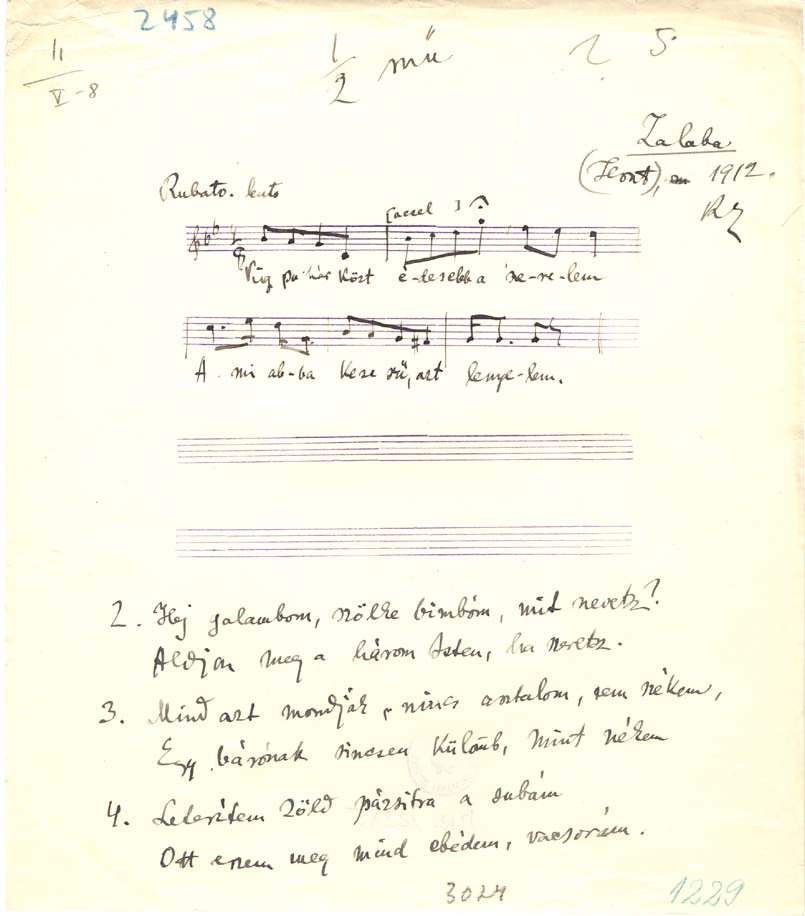 2458
II
V-8
1/2 mű
? 5
Zalaba
(Hont), 1912.
Rubato. lento
[accel ]
Víg po-hár közt é-desebb a sze-re-lem
A mi ab-ba kese rű, azt lenye-lem.
2. Hej galambom, szőlke bimbóm, mit nevetsz?
Áldjon meg a három Isten, ha szeretsz.
3. Mind azt mondják, nincs asztalom, sem nékem,
Egy bárónak sincsen külömb, mint nékem
4. Leterítem zöld pázsitra a subám
Ott eszem meg mind ebédem, vacsorám.
3024
1229